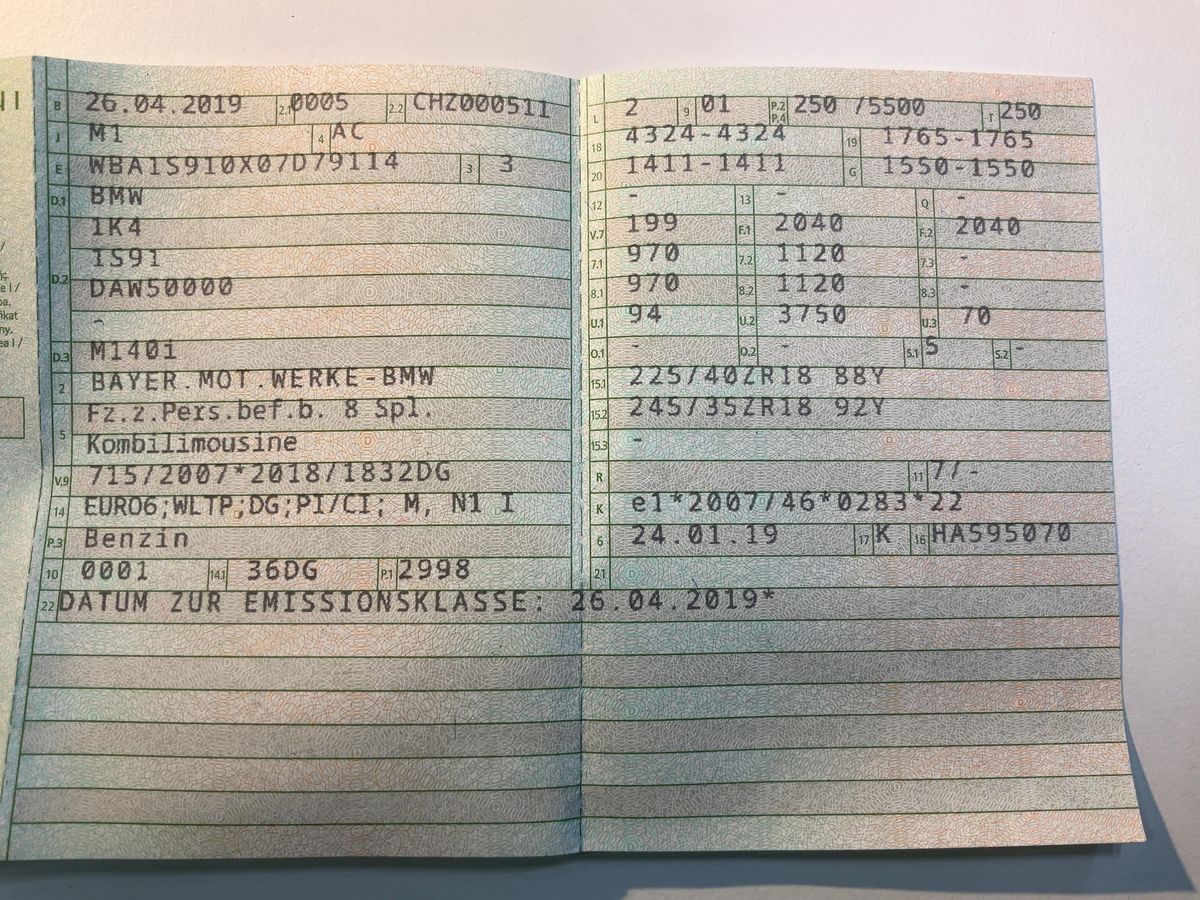 B 26.04.2019 2.1 0005 2.2 CHZ000511
J M1 4 AC
E WBA1S910X07D79114 3 3
D.1 BMW
1K4
1S91
D.2 DAW50000
-
D.3 M140i
2 BAYER.MOT.WERKE-BMW
Fz.z.Pers.bef.b. 8 Spl.
5 Kombilimousine
V.9 715/2007*2018/1832DG
14 EURO6;WLTP;DG;PI/CI; M, N1 I
P.3 Benzin
10 0001 14.1 36DG P.1 2998
L 2 9 01 P.2 P.4 250 /5500 T 250
18 4324-4324 19 1765-1765
20 1411-1411 G 1550-1550
12 - 13 - Q -
V.7 199 F.1 2040 F.2 2040
7.1 970 7.2 1120 7.3 -
8.1 970 8.2 1120 8.3 -
U.1 94 U.2 3750 U.3 70
O.1 - O.2 - S.1 5 S.2 -
15.1 225/40ZR18 88Y
15.2 245/35ZR18 92Y
15.3 -
R 11 7/-
K e1*2007/46*0283*22
6 24.01.19 17 K 16 HA595070
21
22 DATUM ZUR EMISSIONSKLASSE: 26.04.2019*